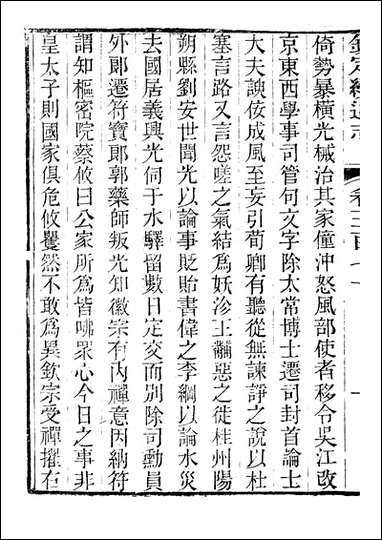 欽定續通志
卷三百七十
倚勢暴橫光械治其家僮沖怒風部使者移令吳江改
京東西學事司管句文字除太常博士遷司封首論士
大夫諛佞成風至妄引荀卿有聽從無諫諍之說以杜
塞言路又言怨嗟之氣結爲妖沴王黼惡之徙桂州陽
朔縣劉安世聞光以論事貶貽書偉之李綱以論水災
去國居義興光伺于水驛留數日定交而別除司勳員
外郎遷符寶郎郭藥師叛光知徽宗有內禪意因納符
謂知樞密院蔡攸曰公家所爲皆咈眾心今日之事非
皇太子則國家俱危攸矍然不敢爲異欽宗受禪擢右